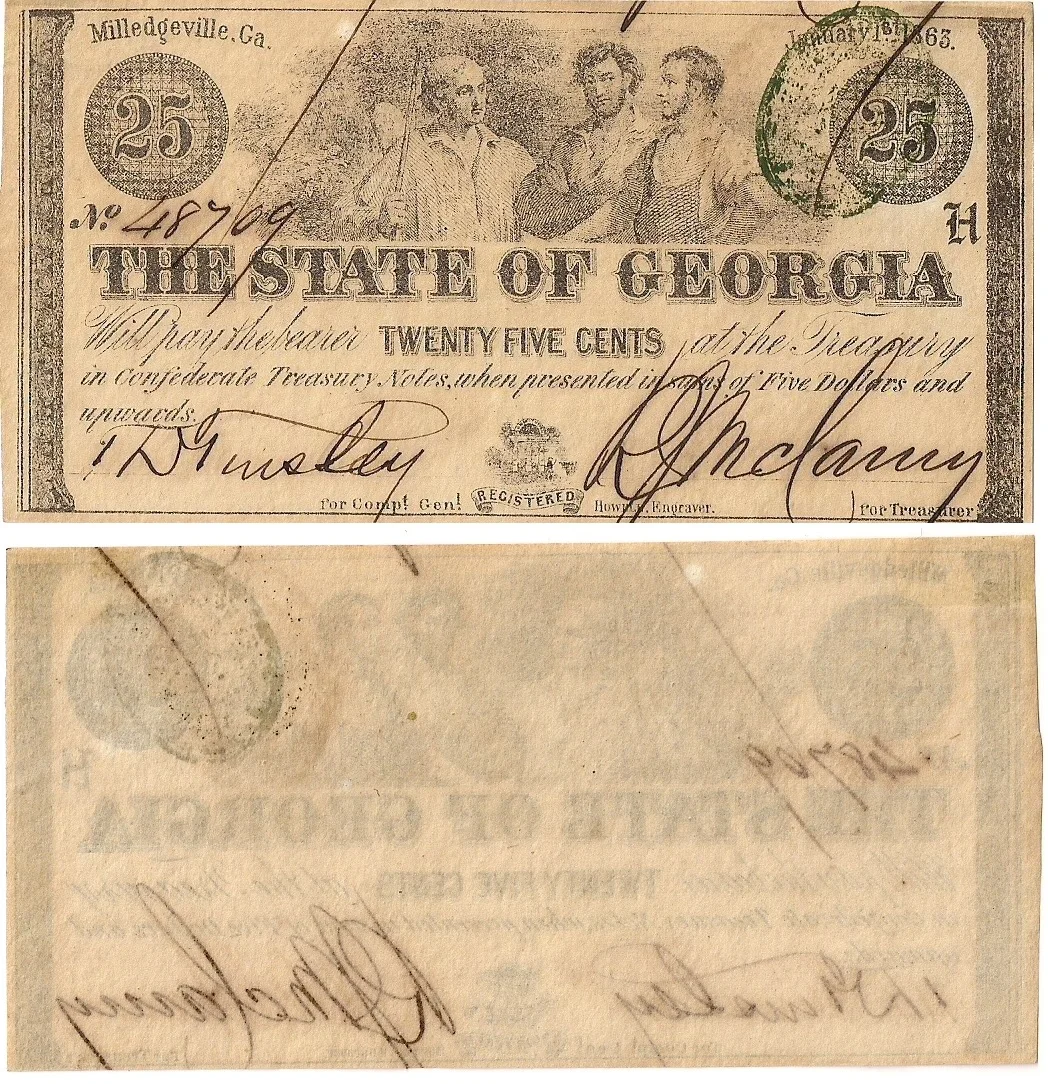 Milledgeville, Ga. January 1st 1863.
25 25
No 48709 H
THE STATE OF GEORGIA
Will pay the bearer TWENTY FIVE CENTS at the Treasury
in Confederate Treasury Notes, when presented in sums of Five Dollars and
upwards.
Tinsley R J McCamy
for Compt Genl REGISTERED Howell, Engraver. for Treasurer